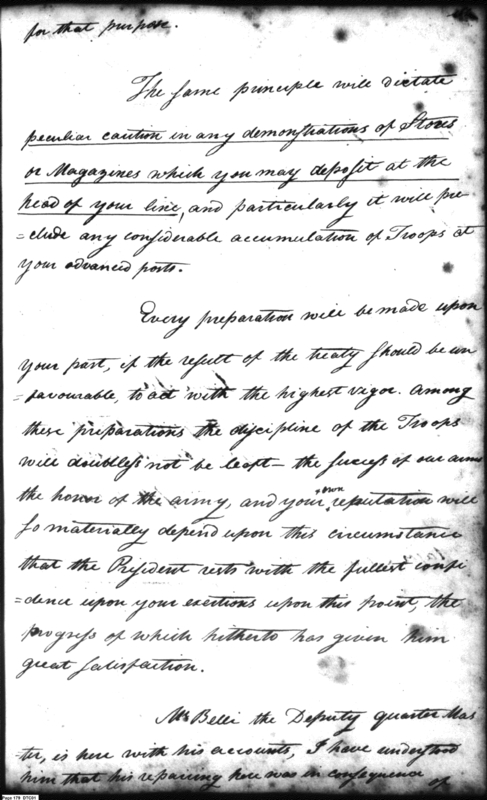 for that purpose.
The same principle will dictate
peculiar caution in any demonstrations of Stores
or Magazines which you may deposit at the
head of your line, and particularly it will pre-
=clude any considerable accumulation of Troops at
your advanced posts.
Every preparation will be made upon
your part, if the result of the treaty should be un
=favourable, to act with the highest vigor. Among
these preparations the discipline of the Troops
will doubtless not be least – the success of our arms
the honor of the army, and your own reputation will
so materially depend upon this circumstance
that the President rests with the fullest confi
=dence upon your exertions upon this point, the
progress of which hitherto has given him
great satisfaction.
Mr Belli the Deputy quarter Mas
ter, is here with his accounts, I have understood
him that his repairing here was in consequence
of
Page 179 DTC01